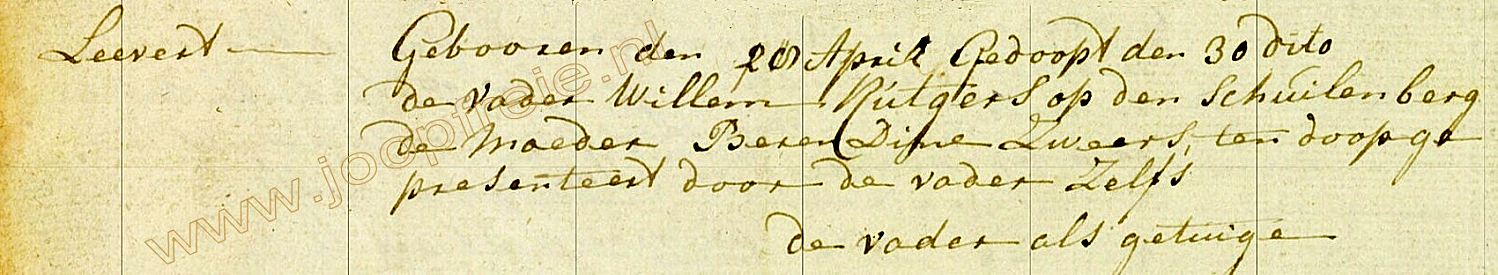 Leevert — Geboren den 28 April Gedoopt den 30 dito
de vader Willem Rutgers op den Schuilenberg
de Moeder Beren Dine Zweers, ten doop ge
presenteert door de vader Zelfs
de vader als getuige
www.joopfreie.nl